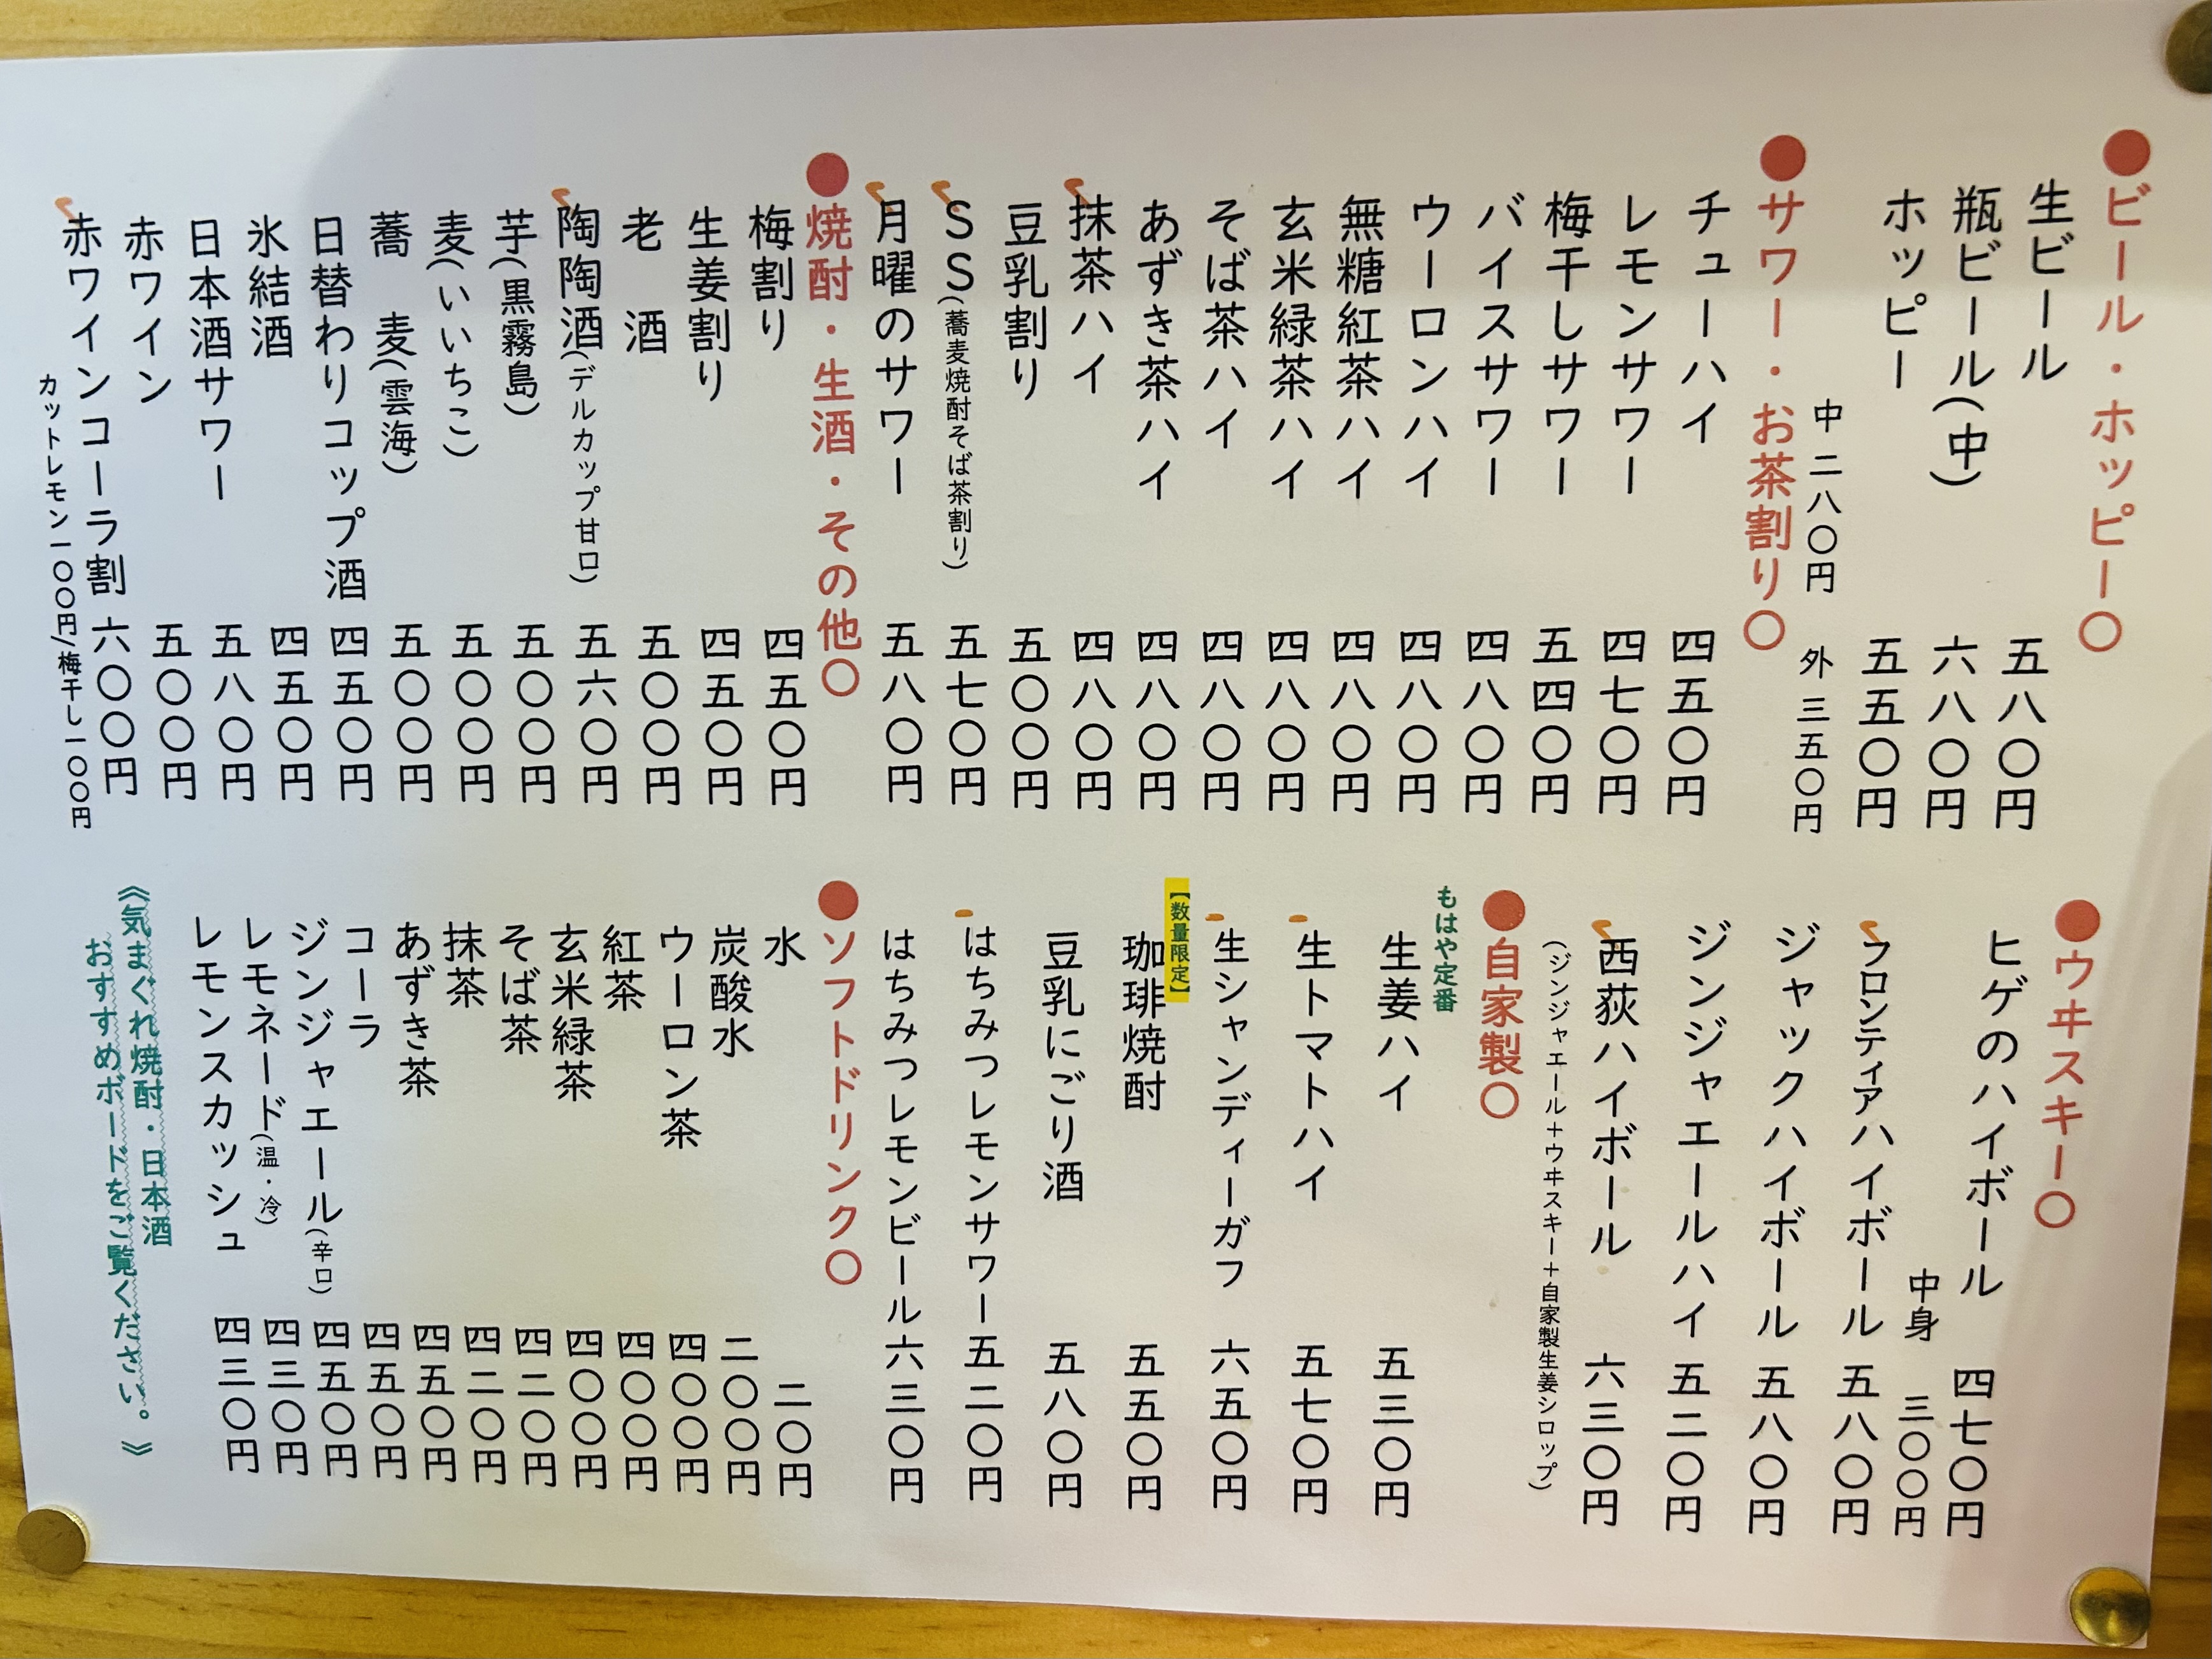 ●ビール・ホッピー○
生ビール 五八〇円
瓶ビール(中) 六八〇円
ホッピー 五五〇円
中 二八〇円 外 三五〇円
●サワー・お茶割り○
チューハイ 四五〇円
レモンサワー 四七〇円
梅干しサワー 五四〇円
バイスサワー 四八〇円
ウーロンハイ 四八〇円
無糖紅茶ハイ 四八〇円
玄米緑茶ハイ 四八〇円
そば茶ハイ 四八〇円
あずき茶ハイ 四八〇円
抹茶ハイ 四八〇円
豆乳割り 五〇〇円
SS(蕎麦焼酎そば茶割り) 五七〇円
月曜のサワー 五八〇円
●焼酎・生酒・その他○
梅割り 四五〇円
生姜割り 四五〇円
老 酒 五〇〇円
陶陶酒(デルカップ甘口) 五六〇円
芋(黒霧島) 五〇〇円
麦(いいちこ) 五〇〇円
蕎 麦(雲海) 五〇〇円
日替わりコップ酒 四五〇円
氷結酒 四五〇円
日本酒サワー 五八〇円
赤ワイン 五〇〇円
赤ワインコーラ割 六〇〇円
カットレモン一〇〇円/梅干し一〇〇円
●ウヰスキー○
ヒゲのハイボール 四七〇円
中身 三〇〇円
フロンティアハイボール 五八〇円
ジャックハイボール 五八〇円
ジンジャエールハイ 五二〇円
西荻ハイボール 六三〇円
(ジンジャエール+ウヰスキー+自家製生姜シロップ)
●自家製○
もはや定番
生姜ハイ 五三〇円
生トマトハイ 五七〇円
生シャンディーガフ 六五〇円
【数量限定】
珈琲焼酎 五五〇円
豆乳にごり酒 五八〇円
はちみつレモンサワー 五二〇円
はちみつレモンビール 六三〇円
●ソフトドリンク○
水 二〇円
炭酸水 二〇〇円
ウーロン茶 四〇〇円
紅茶 四〇〇円
玄米緑茶 四〇〇円
そば茶 四二〇円
抹茶 四二〇円
あずき茶 四五〇円
コーラ 四五〇円
ジンジャエール(辛口) 四五〇円
レモネード(温・冷) 四三〇円
レモンスカッシュ 四三〇円
《気まぐれ焼酎・日本酒
おすすめボードをご覧ください。》